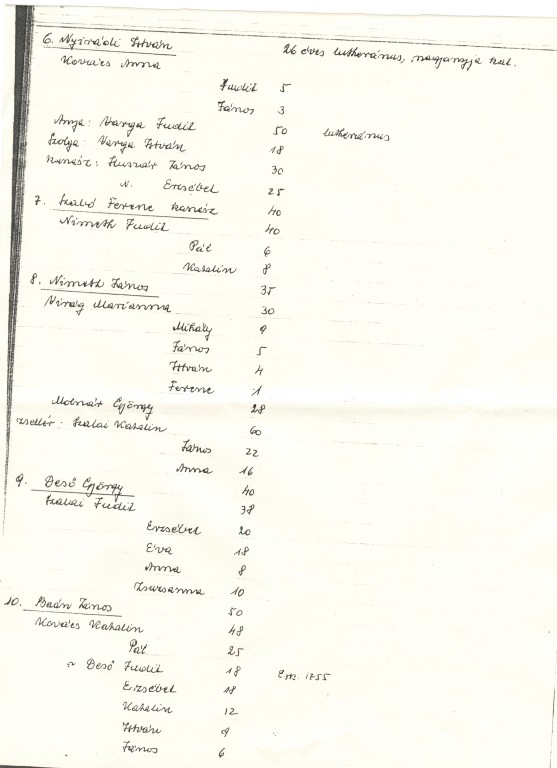 6. Nyirádi István 26 éves lutheránus, nagyanyja kat.
Kovács Anna
Judit 5
János 3
Anyja: Varga Judit 50 lutheránus
Szolga: Varga István 18
kanász: Huszár János 30
N. Erzsébet 25
7. Szabó Ferenc kanász 40
Németh Judit 40
Pál 6
Katalin 8
8. Németh János 35
Virág Marianna 30
Mihály 9
János 5
István 4
Ferenc 1
Molnár György 28
zsellér: Szalai Katalin 60
János 22
Anna 16
9. Deső György 40
Szabai Judit 38
Erzsébet 20
Éva 18
Anna 8
Zsuzsanna 10
10. Baán János 50
Kovács Katalin 48
Pál 25
~ Deső Judit 18 Esk. 1755
Erzsébet 18
Katalin 12
István 9
János 6